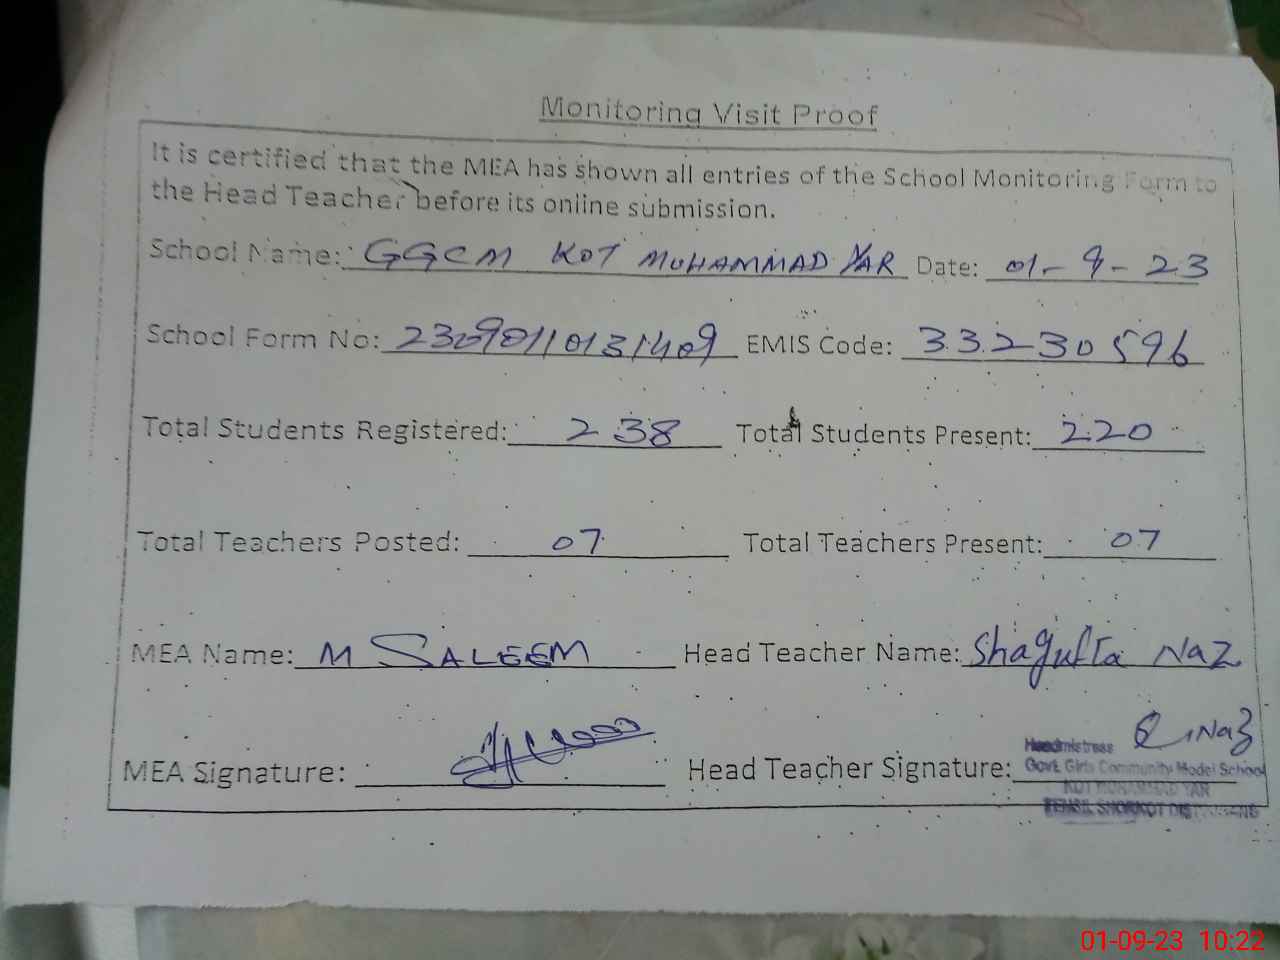 Monitoring Visit Proof
It is certified that the MEA has shown all entries of the School Monitoring Form to
the Head Teacher before its online submission.
School Name: GGCM KOT MUHAMMAD YAR Date: 01-9-23
School Form No: 2309011013 1409 EMIS Code: 33230596
Total Students Registered: 238 Total Students Present: 220
Total Teachers Posted: 07 Total Teachers Present: 07
MEA Name: M SALEEM Head Teacher Name: Shagufta Naz
MEA Signature: Head Teacher Signature: Naz
Headmistress
Govt. Girls Community Model School
KOT MUHAMMAD YAR
TEHSIL SHORKOT DISTT JHANG
01-09-23 10:22